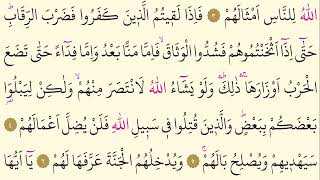 اللّٰهُ لِلنَّاسِ اَمْثَالَهُمْ ﴿٣﴾ فَاِذَا لَق۪يتُمُ الَّذ۪ينَ كَفَرُوا فَضَرْبَ الرِّقَابِۜ
حَتّٰٓى اِذَٓا اَثْخَنْتُمُوهُمْ فَشُدُّوا الْوَثَاقَۙ فَاِمَّا مَنًّا بَعْدُ وَاِمَّا فِدَٓاءً حَتّٰى تَضَعَ
الْحَرْبُ اَوْزَارَهَا ۚ ذٰلِكَۜ وَلَوْ يَشَٓاءُ اللّٰهُ لَانْتَصَرَ مِنْهُمْۙ وَلٰكِنْ لِيَبْلُوَ۬ا
بَعْضَكُمْ بِبَعْضٍۜ وَالَّذ۪ينَ قُتِلُوا ف۪ي سَب۪يلِ اللّٰهِ فَلَنْ يُضِلَّ اَعْمَالَهُمْ ﴿٤﴾
سَيَهْد۪يهِمْ وَيُصْلِحُ بَالَهُمْۚ ﴿٥﴾ وَيُدْخِلُهُمُ الْجَنَّةَ عَرَّفَهَا لَهُمْ ﴿٦﴾ يَٓا اَيُّهَا